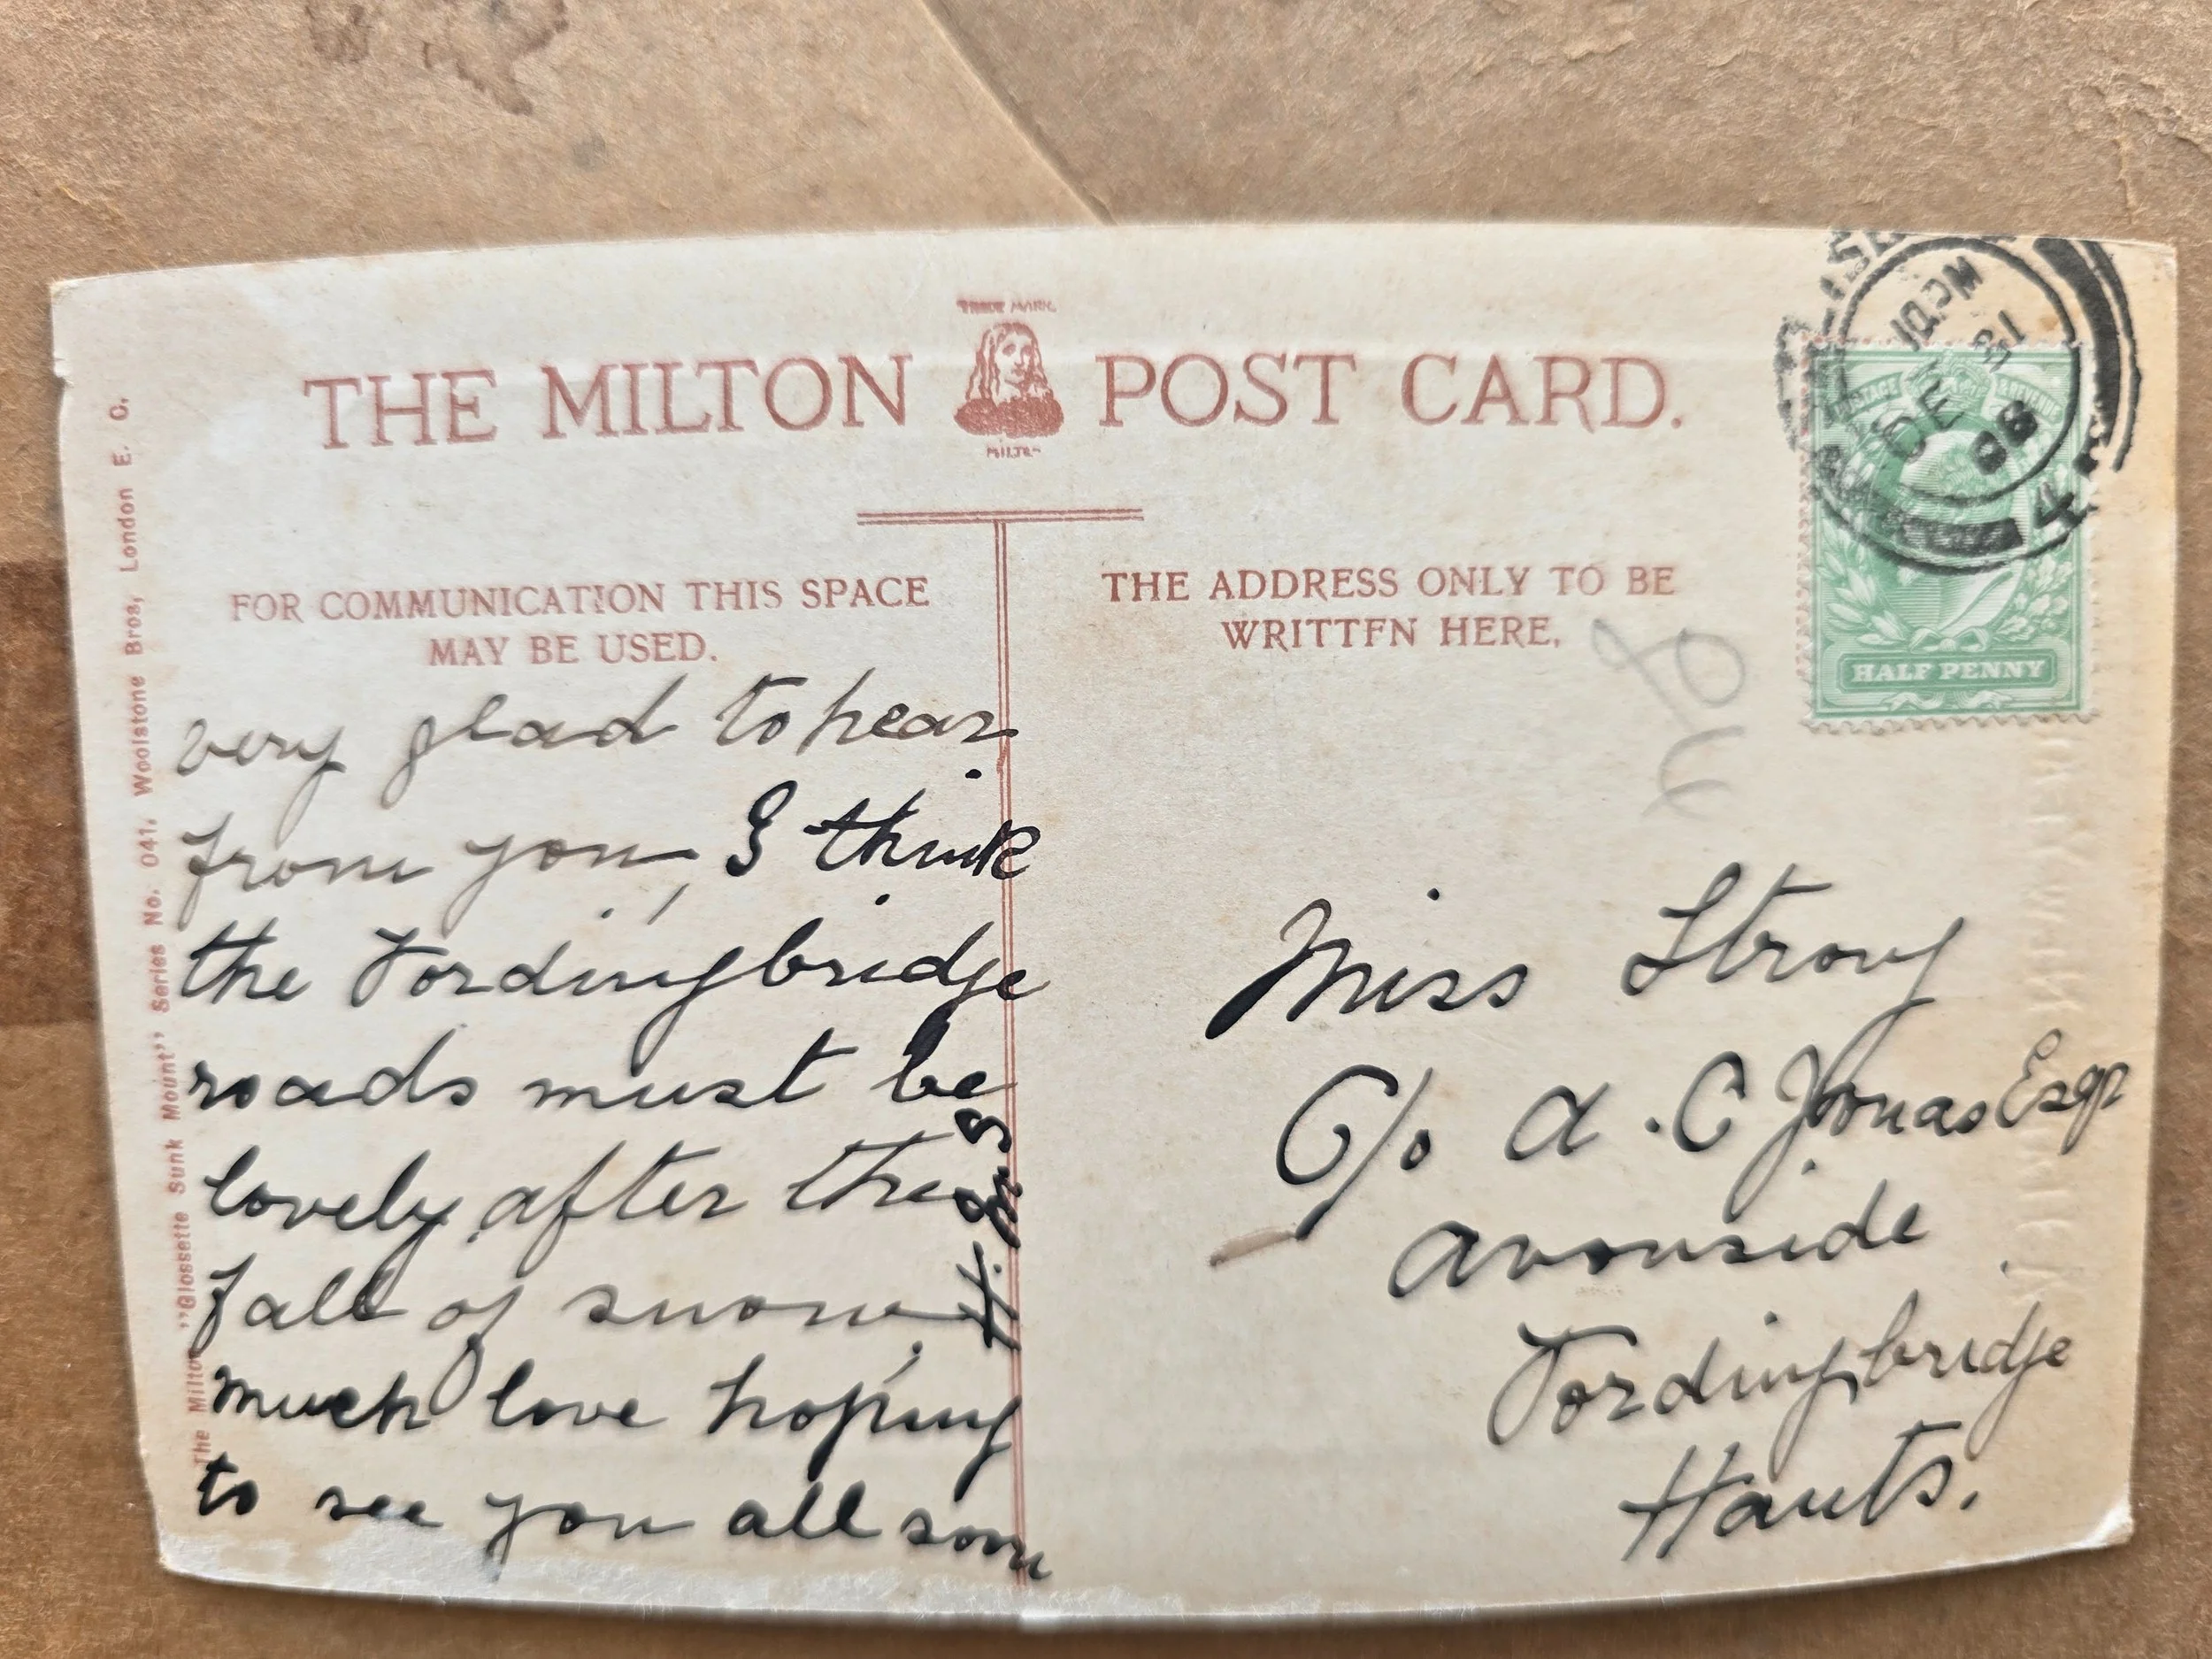 TRADE MARK
THE MILTON POST CARD.
MILTON
FOR COMMUNICATION THIS SPACE
MAY BE USED.
very glad to hear
from you, I think
the Fordingbridge
roads must be
lovely after the
fall of snow.
much love hoping
to see you all soon
THE ADDRESS ONLY TO BE
WRITTFN HERE,
Miss Strong
C/o A. C Jonas Esqr
Avonside
Fordingbridge
Hants.
HALF PENNY
DE 30
08
4
The Milton "Glossette Sunk Mount" Series No. 041. Woolstone Bros, London E. C.